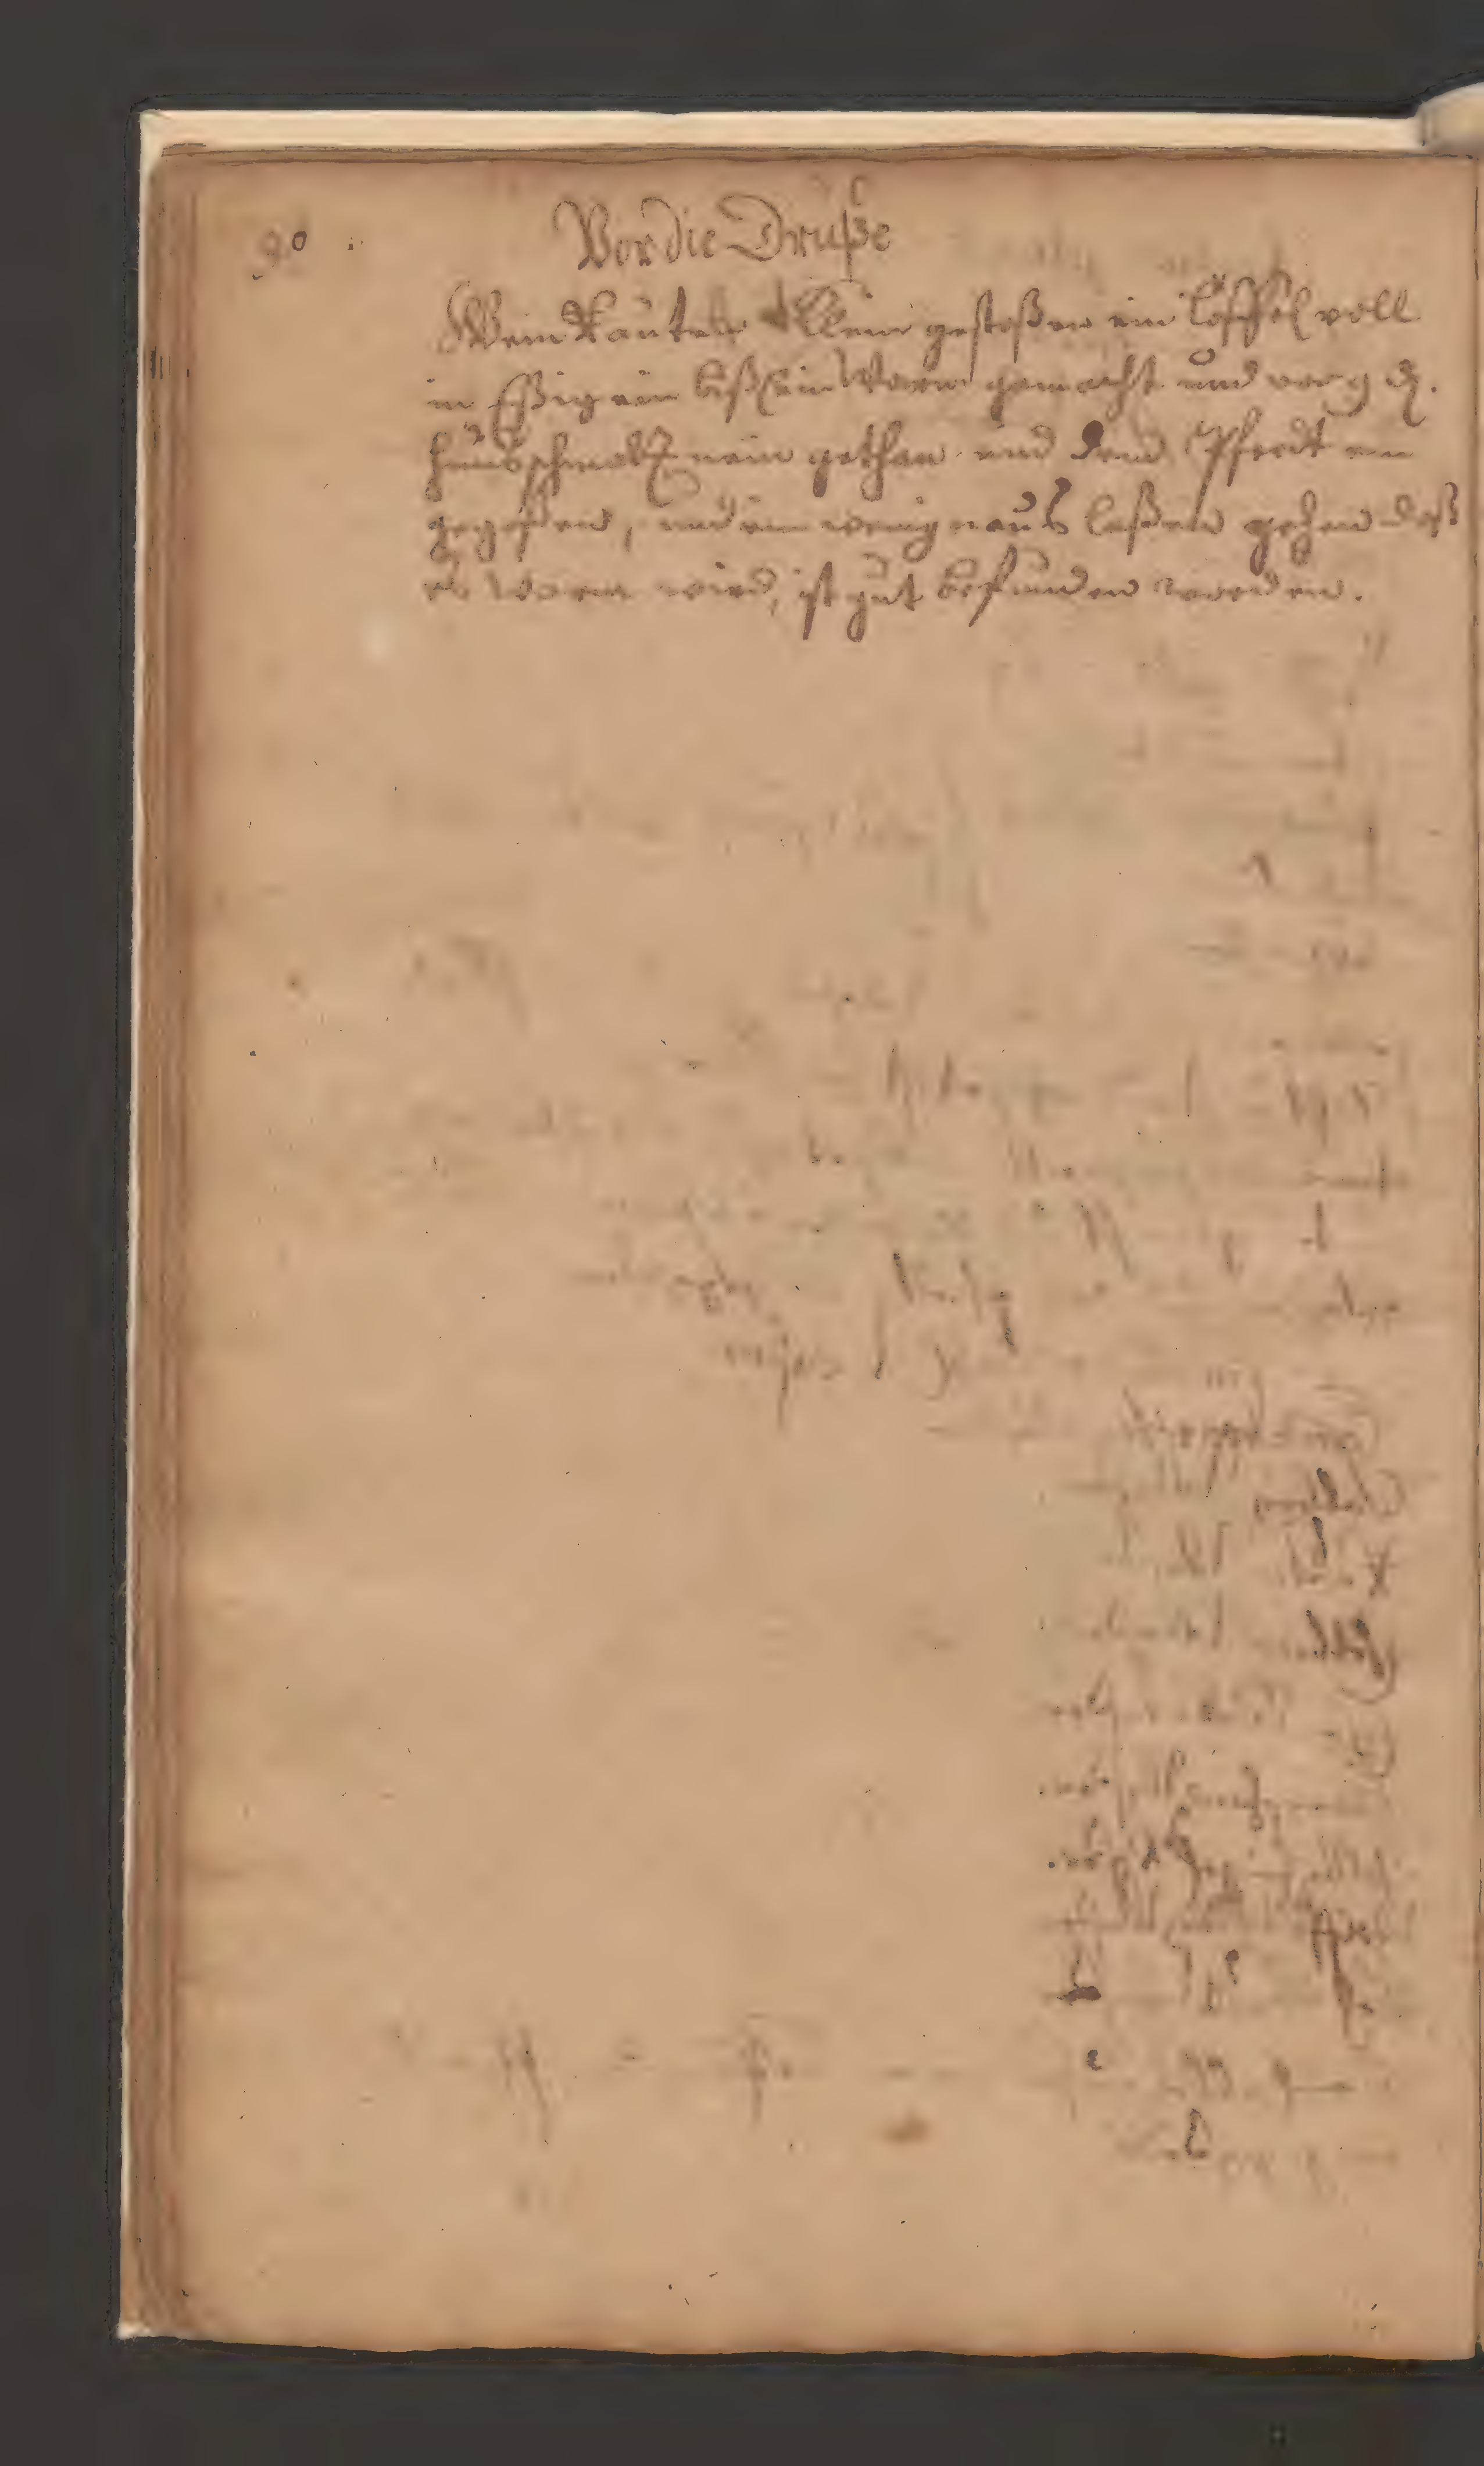 90
Vor die Druße
Wein Rauten klein gestoßen ein löffel voll
in Eßig ein bißlein Warm gemacht und vor 9 ₰.
hundsschmaltz nein gethan und dem Pferdt ein
gegoßen, und ein wenig naus laßen gehen daß
es warm wird, ist gut befunden worden.